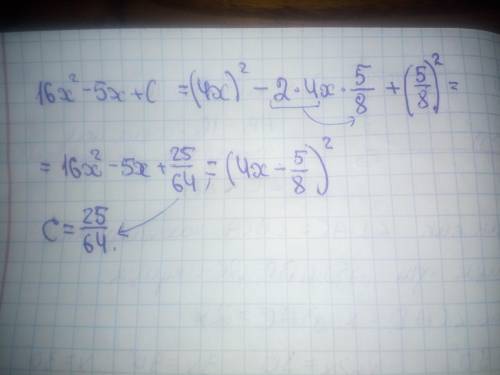 16x² - 5x + C = (4x)² - 2 · 4x · 5/8 + (5/8)² =
= 16x² - 5x + 25/64 = (4x - 5/8)²
C = 25/64.